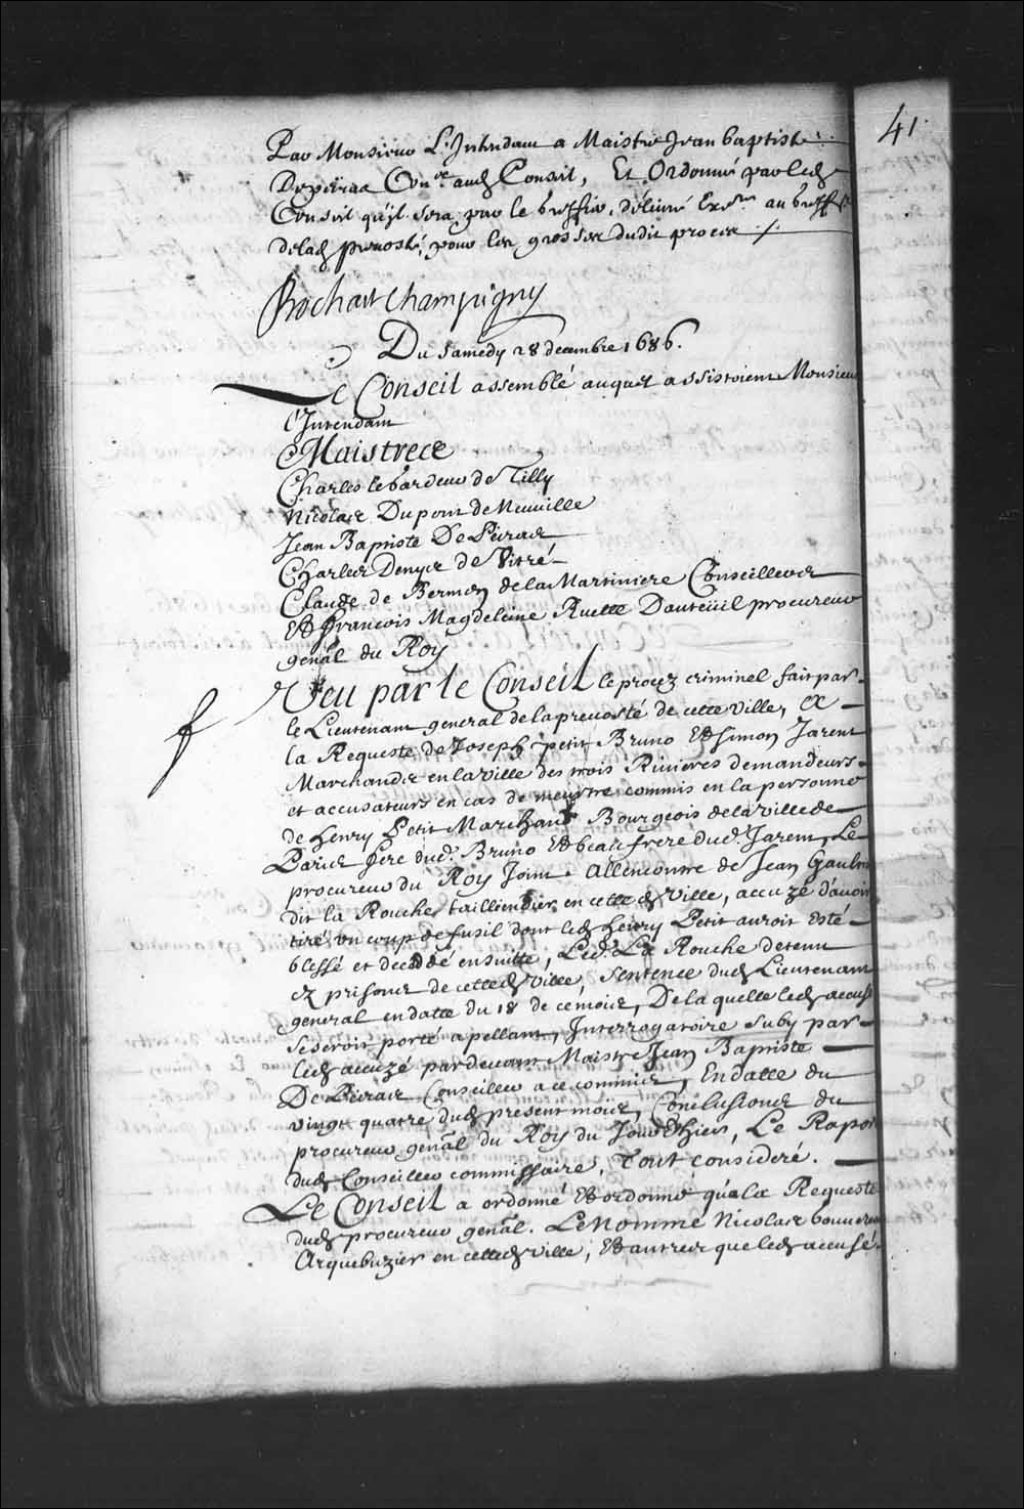 41.
Par Monsieur L'Intendant a Maistre Jean baptiste
Depeiras Con.er aud Conseil, Et Ordonné par led
Conseil qu'jl sera par le Greffier, délivré Ex.re au Greffe
delad prevosté, pour les grosses dudit procez ./.
Bochart Champigny
Du Samedy 28 decembre 1686.
Le Conseil assemblé auquel assistoient Monsieur
l'Intendant
Maistres
Charles le Gardeur de Tilly
Nicolas Dupont de Neuuille
Jean Baptiste De Peiras
Charles Denys de Vitré
Claude de Bermen de la Martiniere Conseillers
Et francois Magdeleine Ruette Dauteüil procureur
genãl du Roy
Veu par le Conseil le procez criminel fait par
le Lieutenant general de la preuosté de cette ville, a
la Requeste de Joseph petit Bruno Et Simon Jarent
Marchands en la ville des trois Riuieres demandeurs
et accusateurs en cas de meurtre commis en la personne
de henry Petit Marchant Bourgeois de la ville de
Paris frere dud. Bruno Et beau frere dud. Jarent, Le
procureur du Roy Joint. Allencontre de Jean Gaultier
dit la Rouche, taillandier en cette d ville, accuzé d'auoir
tiré vn coup de fusil dont led henry Petit auroit esté
blessé et decedé ensuitte, Led. La Rouche detenu
ez prisons de cette d ville, Sentence dud Lieutenant
general en datte du 18 de ce mois, De la quelle led accusé
se seroit porté apellant, Interrogatoire suby par
led accuzé pardeuant Maistre Jean Baptiste
De Peiras Conseiller a ce commis, En datte du
vingt quatre dud present mois, Conclusions du
procureur genãl du Roy du Jour d'hier, Le Raport
dud Conseiller commissaire, Tout consideré.
Le Conseil a ordonné Et ordonne qu'a la Requeste
dud procureur genãl. Le nommé Nicolas
Arquebuzier en cette d ville, Et autres que led accusé